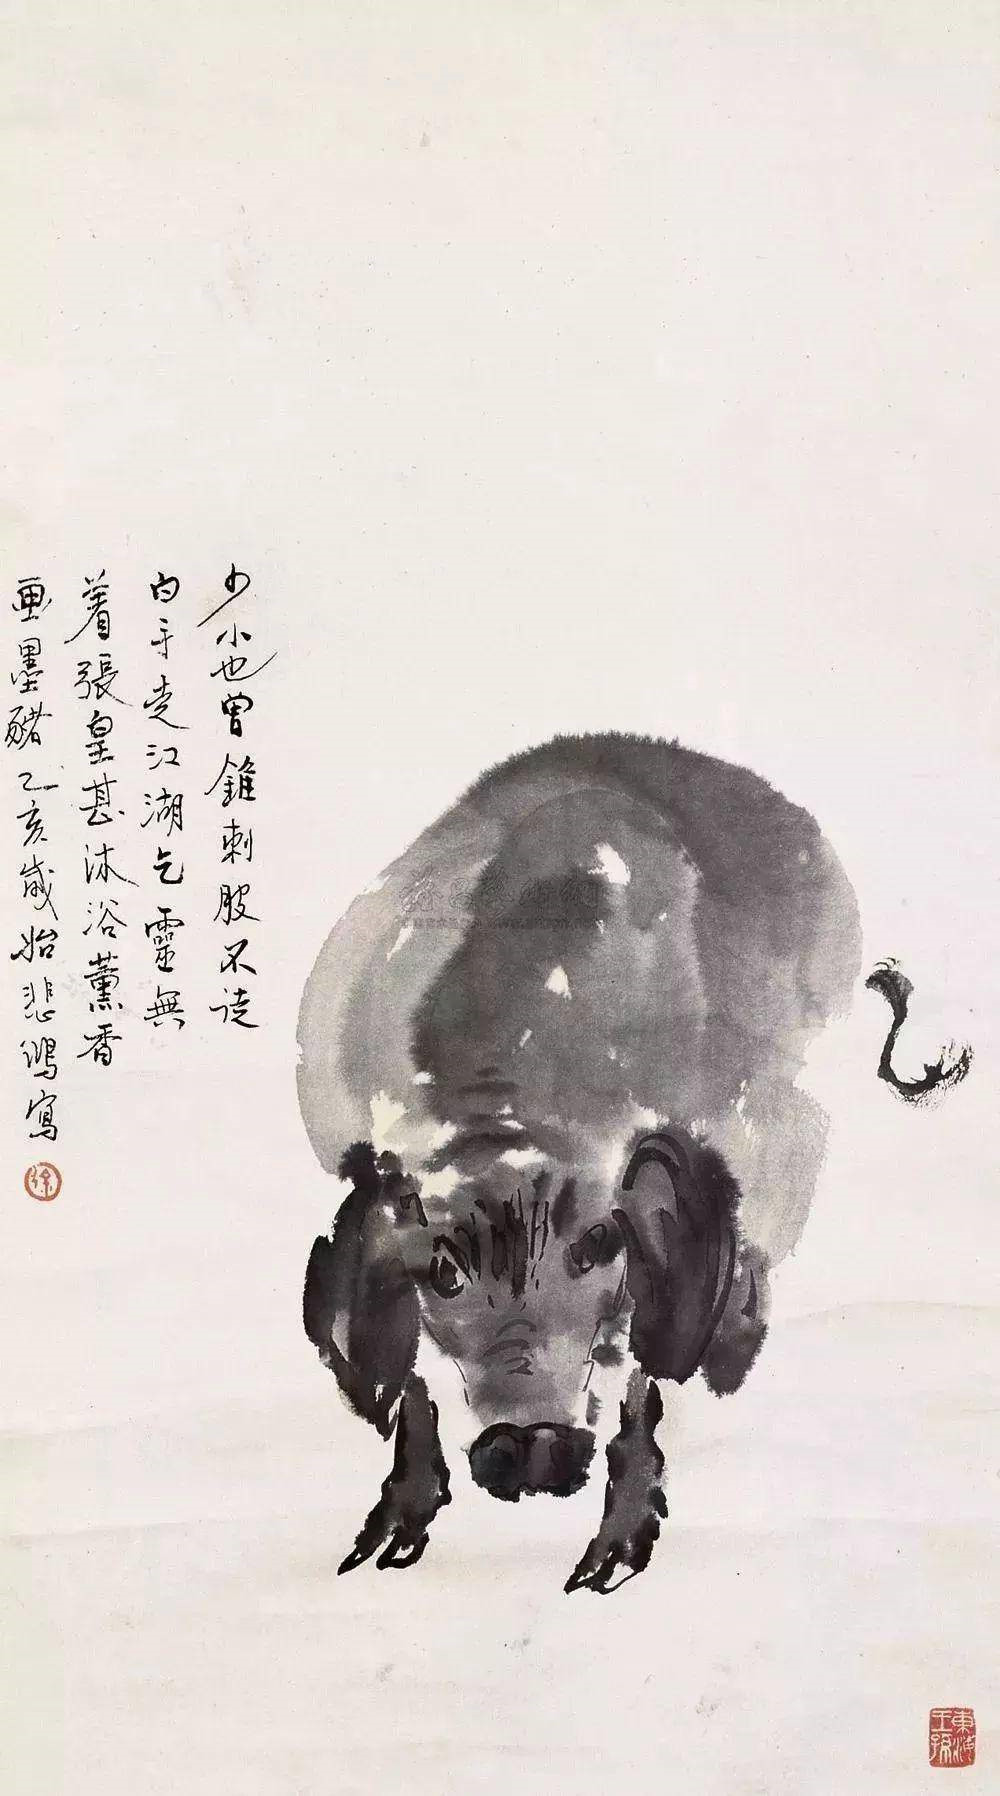 少小也曾錐刺股不徒
白手走江湖乞靈無
着張皇甚沐浴薰香
畫墨豬乙亥歲始悲鴻寫
徐
東海
王孫